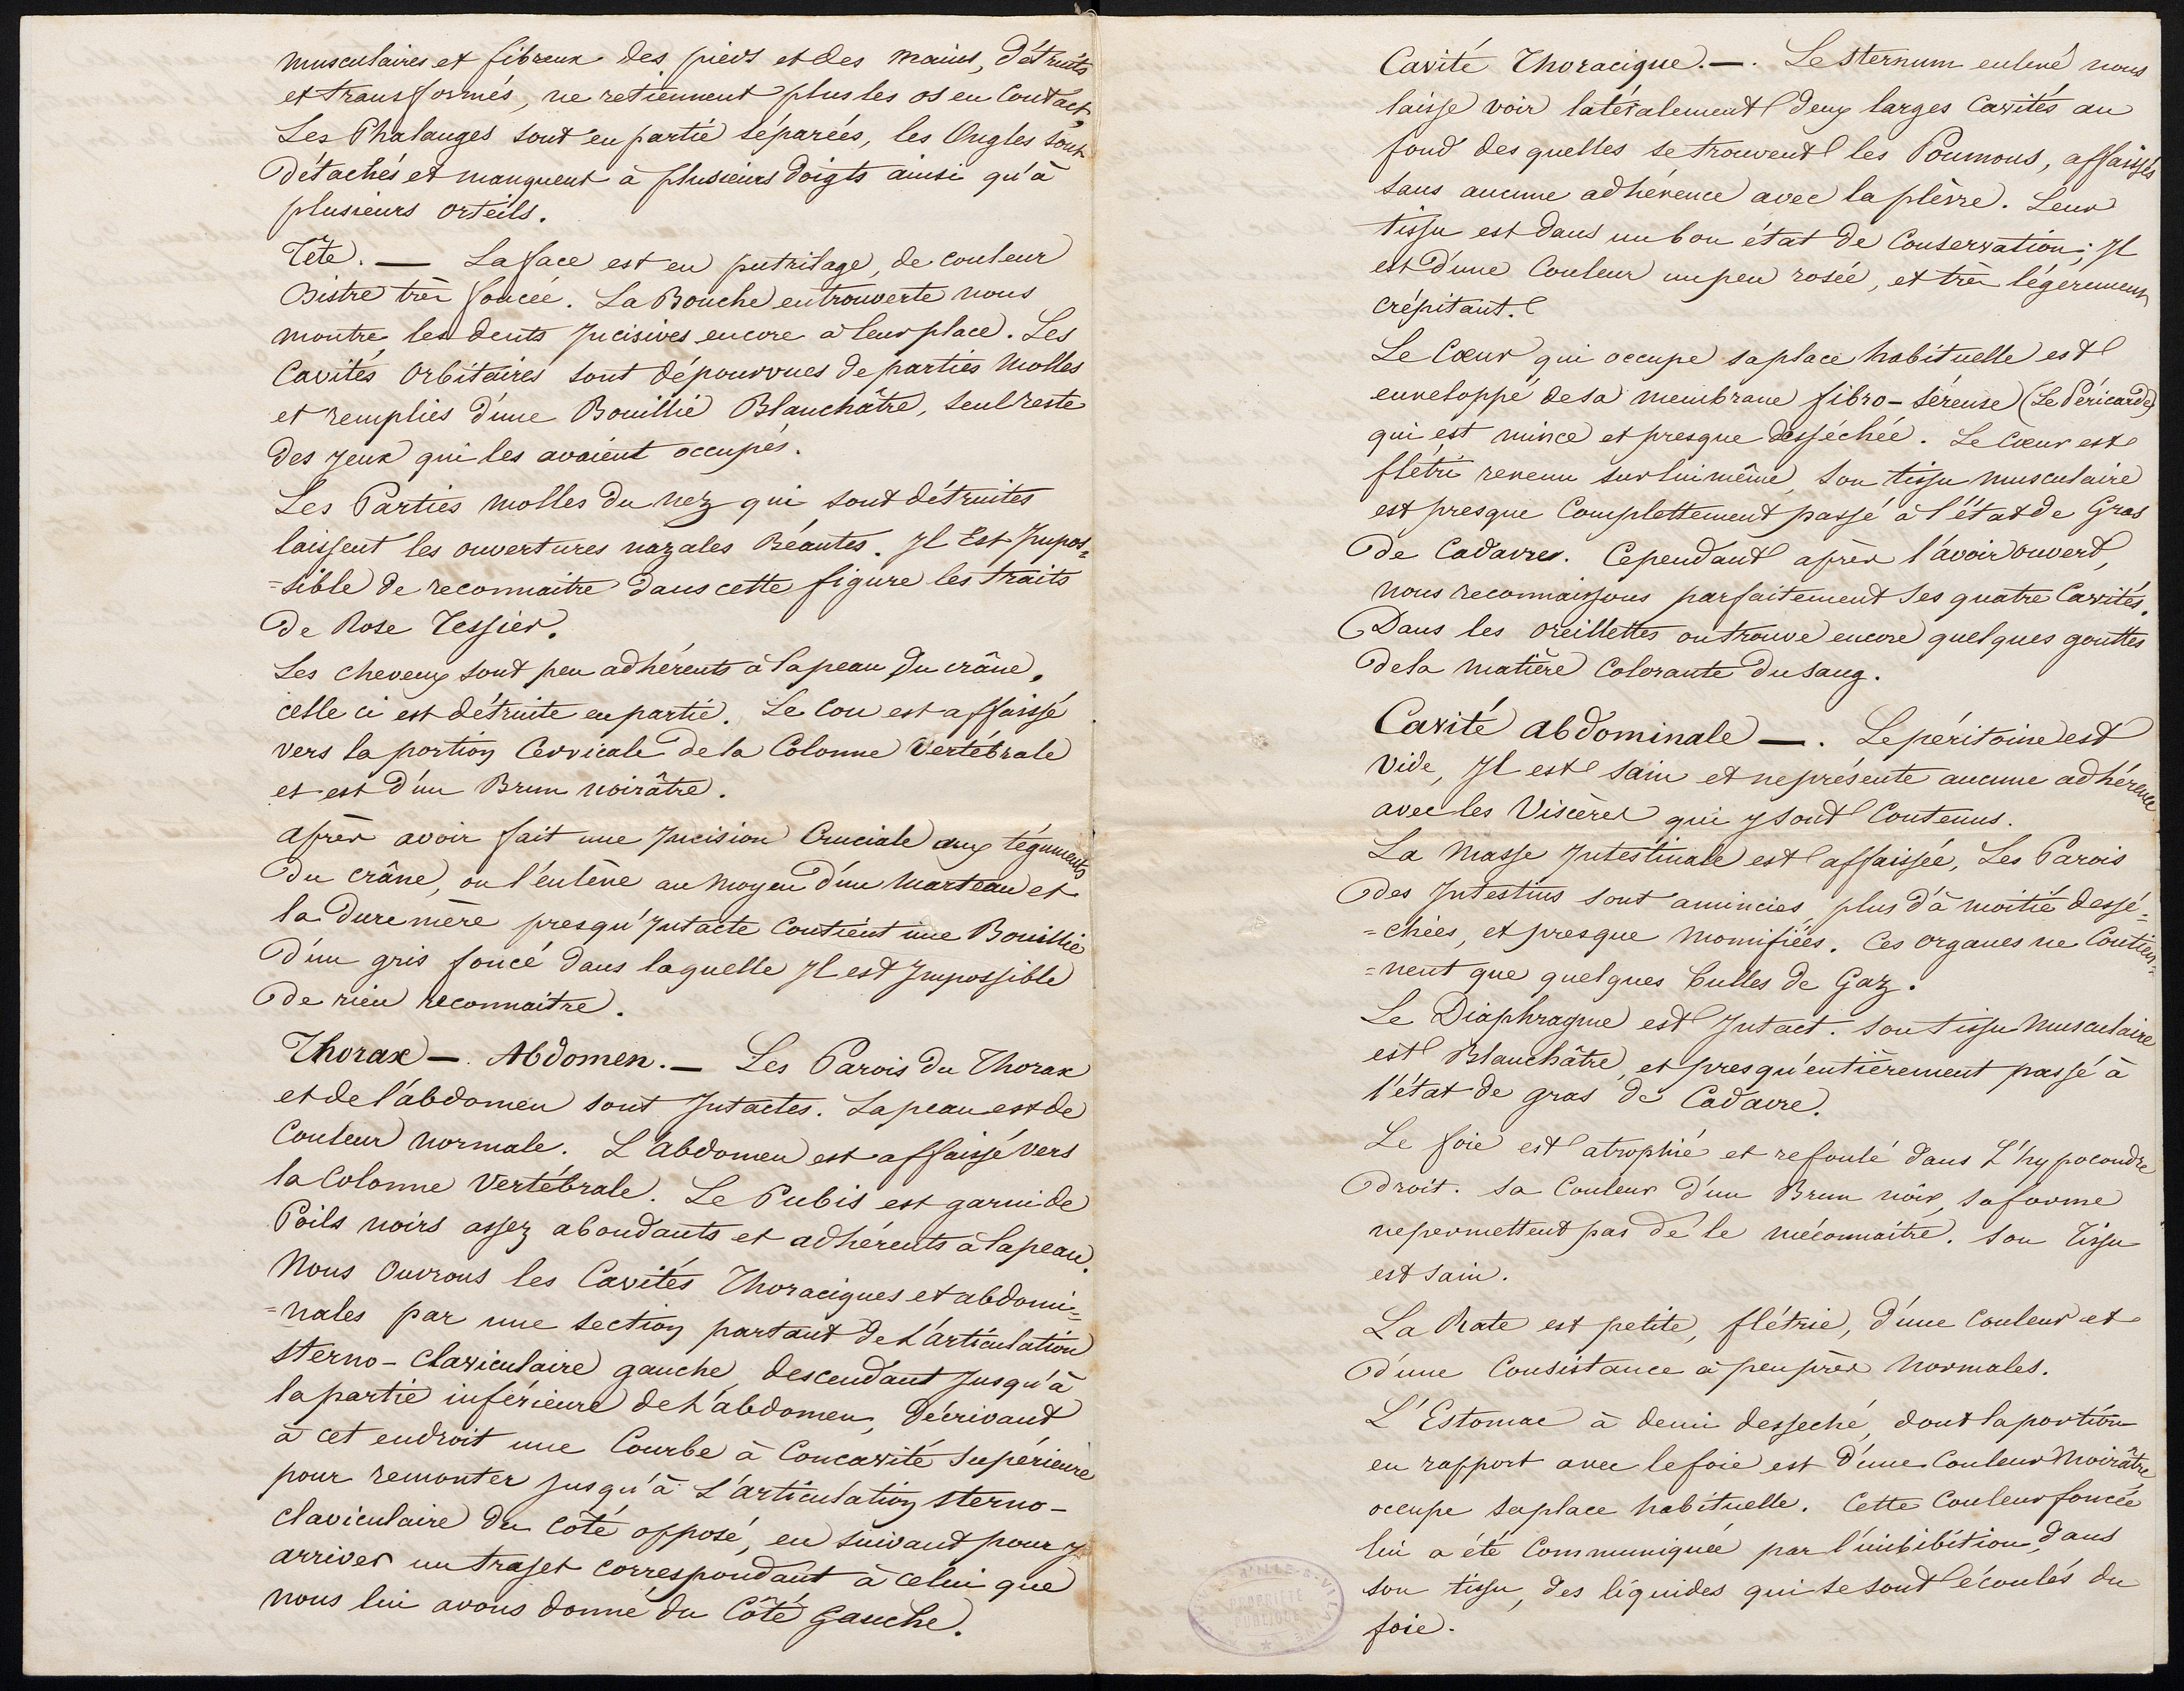 musculaires et fibreux des pieds et des mains, détruits
et transformés, ne retiennent plus les os en Contact,
Les Phalanges sont en partie séparées, les Ongles sont
détachés et manquent à plusieurs doigts ainsi qu'à
plusieurs orteils.
Tête. — La face est en putrilage, de couleur
Bistre très foncée. La Bouche entrouverte nous
montre les dents Incisives encore à leur place. Les
Cavités Orbitaires sont dépourvues de parties Molles
et remplies d'une Bouillie Blanchâtre, seul reste
des yeux qui les avaient occupés.
Les Parties molles du nez qui sont détruites
laissent les ouvertures nazales Béantes. Il Est Impos=
=sible de reconnaitre dans cette figure les traits
de Rose Tessier.
Les cheveux sont peu adhérents à la peau du crâne,
celle ci est détruite en partie. Le Cou est affaissé
vers la portion Cervicale de la Colonne Vertébrale
et est d'un Brun noirâtre.
après avoir fait une Incision Cruciale aux téguments
du crâne, on l'enlève au moyen d'un Marteau et
la dure mère presqu'Intacte Contient une Bouillie
d'un gris foncé dans laquelle Il est Impossible
de rien reconnaitre.
Thorax —. Abdomen. — Les Parois du Thorax
et de l'abdomen sont Intactes. La peau est de
Couleur normale. L'Abdomen est affaissé vers
la Colonne Vertébrale. Le Pubis est garni de
Poils noirs assez abondants et adhérents à la peau.
Nous Ouvrons les Cavités Thoraciques et abdomi=
=nales par une section partant de L'articulation
sterno-Claviculaire gauche, descendant Jusqu'à
la partie inférieure de L'abdomen, décrivant
à cet endroit une Courbe à Concavité Supérieure
pour remonter Jusqu'à L'articulation sterno-
claviculaire du Côté opposé, en suivant pour y
arriver un trajet correspondant à celui que
nous lui avons donné du Côté gauche.
Cavité Thoracique. —. Le Sternum enlevé nous
laisse voir latéralement deux larges Cavités au
fond des quelles se trouvent les Poumons, affaissés
sans aucune adhérence avec la plèvre. Leur
tissu est dans un bon état de Conservation; Il
est d'une Couleur un peu rosée, et très légèrement
crépitant.
Le Cœur qui occupe sa place habituelle est
enveloppé de sa membrane fibro-séreuse (Le Péricarde)
qui est mince et presque desséchée. Le Cœur est
flétri revenu sur lui même, son tissu musculaire
est presque Complettement passé à l'état de Gras
de Cadavres. Cependant après l'avoir ouvert,
nous reconnaissons parfaitement ses quatre Cavités.
Dans les oreillettes on trouve encore quelques gouttes
de la matière Colorante du sang.
Cavité abdominale —. Le péritoine est
vide, Il est sain et ne présente aucune adhérence
avec les Viscères qui y sont Contenus.
La Masse Intestinale est affaissée, Les Parois
des Intestins sont amincies, plus d'à moitié dessé=
=chées, et presque Momifiées. Ces organes ne Contien=
=nent que quelques bulles de Gaz.
Le Diaphragme est Intact. Son tissu Musculaire
est Blanchâtre, et presqu'entièrement passé à
l'état de gras de Cadavre.
Le foie est atrophié et refoulé dans L'hypocondre
droit. Sa Couleur d'un Brun noir, sa forme
ne permettent pas de le méconnaitre. Son Tissu
est sain.
La Rate est petite, flétrie, d'une Couleur et
d'une Consistance à peu près Normales.
L'Estomac à demi desseché, dont la portion
en rapport avec le foie est d'une Couleur Noirâtre
occupe sa place habituelle. Cette Couleur foncée
lui a été Communiquée par l'imbibition, dans
son tissu, des liquides qui se sont écoulés du
foie.
PROPRIÉTÉ
PUBLIQUE